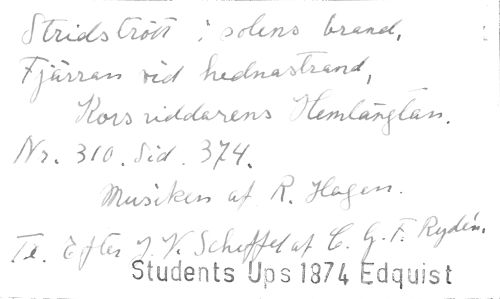 Stridstrött i solens brand,
Fjärran vid hednastrand,
Korsriddarens Hemlängtan.
Nr. 310. Sid. 374.
Musiken af R. Hagen.
Te. Efter J. V. Scheffel af C. G. F. Rydén.
Students Ups 1874 Edquist